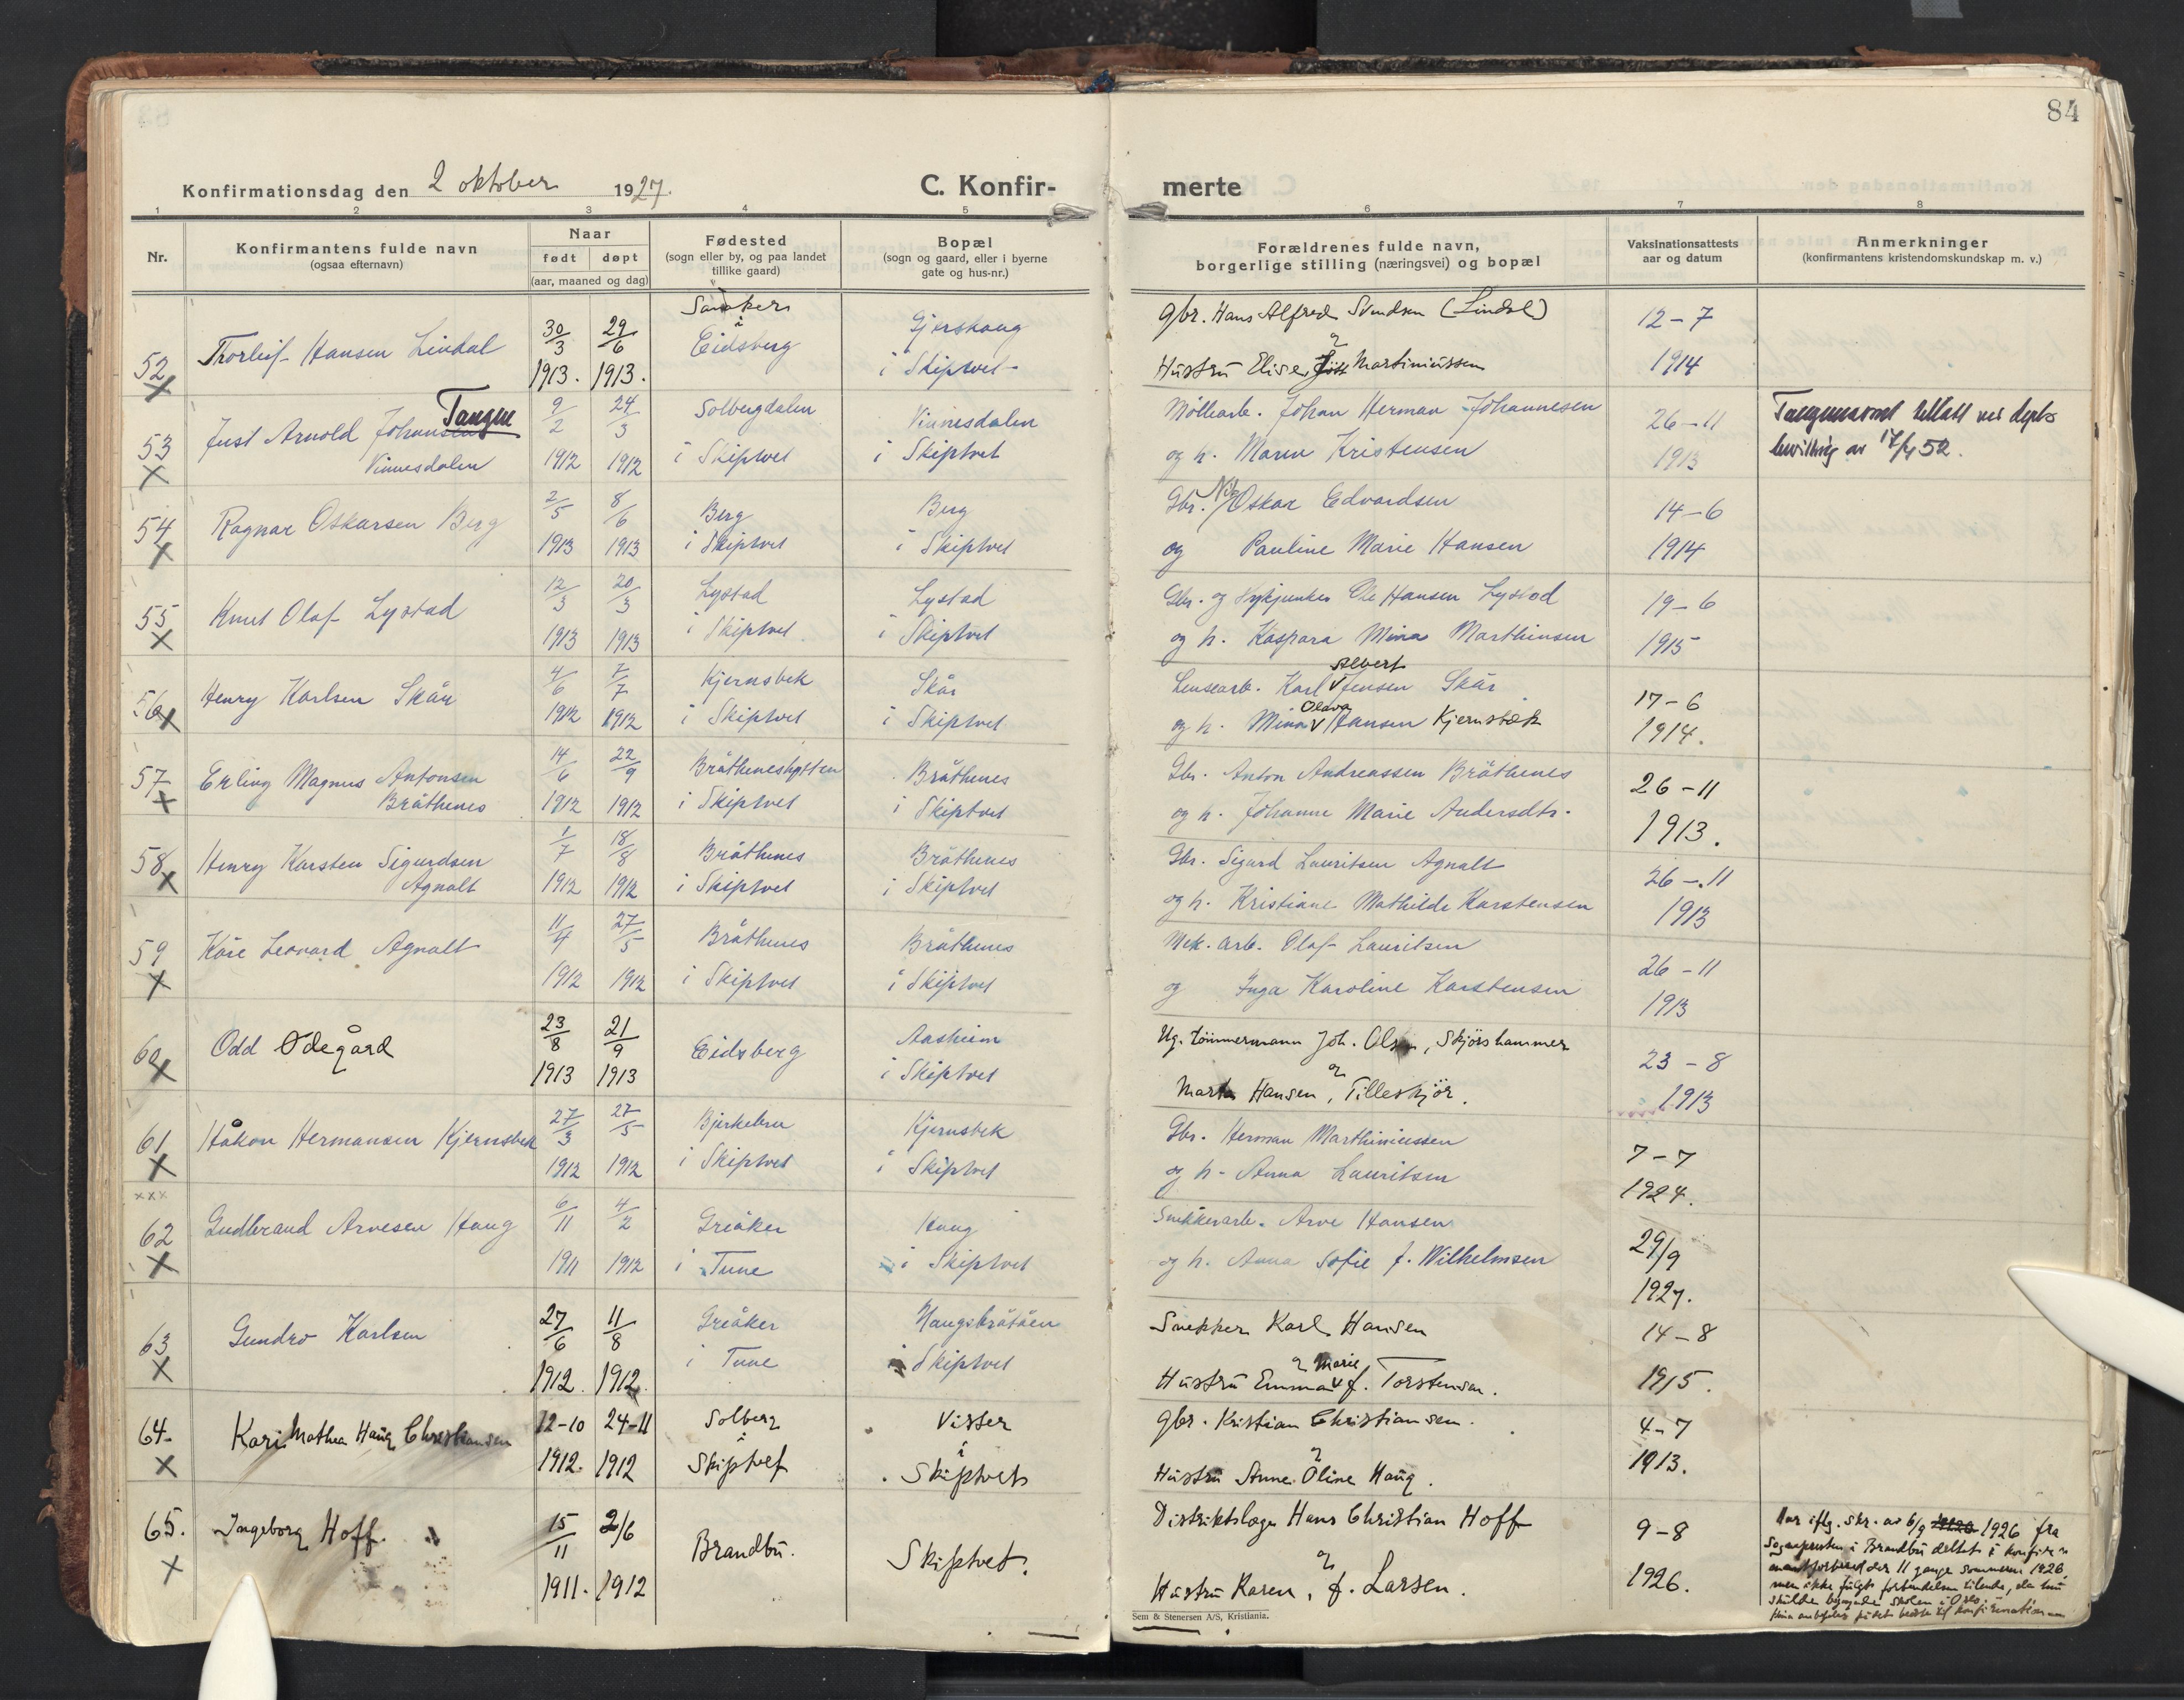 84
Konfirmationsdag den 2 oktober 1927.
C. Konfir-
merte
1 2 3 4 5 6 7 8
Nr.
Konfirmantens fulde navn
(ogsaa efternavn)
Naar
født døpt
(aar, maaned og dag)
Fødested
(sogn eller by, og paa landet
tillike gaard)
Bopæl
(sogn og gaard, eller i byerne
gate og hus-nr.)
Forældrenes fulde navn,
borgerlige stilling (næringsvei) og bopæl
Vaksinationsattests
aar og datum
Anmerkninger
(konfirmantens kristendomskundskap m. v.)
52 Thorleif Hansen Lindal 30/3 1913. 29/6 1913. i Eidsberg i Skiptvet
gbr. Hans Alfred Svendsen (Lindal)
Hustru Elise Martiniussen
12-7
1914
53 Just Arnold Johansen Tangen
Vinnesdalen
9/2 1912 24/3 1912 Solbergdalen i Skiptvet Vinnesdalen i Skiptvet
Møllearb. Johan Herman Johannesen
og h. Maren Kristensen
26-11
1913
Tangennavnet tillatt ved
bevilling av 17/4 52.
54 Ragnar Oskarsen Berg 2/5 1913 8/6 1913 Berg i Skiptvet Berg i Skiptvet
Gbr. Nils Oskar Edvardsen
og Pauline Marie Hansen
14-6
1914
55 Knut Olaf Lystad 12/3 1913 20/3 1913 Lystad i Skiptvet Lystad i Skiptvet
Gbr. og Ole Hansen Lystad
og h. Kaspara Mina Marthinsen
19-6
1915
56 Henry Karlsen Skår 4/6 1912 7/7 1912 Kjernsbek i Skiptvet Skår i Skiptvet
Lensearb. Karl Albert Jensen Skår
og h. Mina Olava Hansen Kjernsbæk
17-6
1914.
57 Erling Magnus Antonsen
Bråthenes
14/6 1912 22/9 1912 i Skiptvet Bråthenes i Skiptvet
Gbr. Anton Andreassen Bråthenes
og h. Johanne Marie Andersdtr.
26-11
1913.
58 Henry Karsten Sigurdsen
Agnalt
1/7 1912 18/8 1912 Bråthenes i Skiptvet Bråthenes i Skiptvet
Gbr. Sigurd Lauritsen Agnalt
og h. Kristiane Mathilde Karstensen
26-11
1913
59 Kåre Leonard Agnalt 11/4 1912 27/5 1912 Bråthenes i Skiptvet Bråthenes i Skiptvet
Mek. arb. Olaf Lauritsen
og Inga Karoline Karstensen
26-11
1913
60 Odd Ødegård 23/8 1913 21/9 1913 Eidsberg Aasheim i Skiptvet
Ug. tømmermann Joh. Olsen, Skjørshammer
Marta Hansen, Tilleskjør.
23-8
1913
61 Håkon Hermansen Kjernsbek 27/3 1912 27/5 1912 Bjerkebru i Skiptvet Kjernsbek i Skiptvet
Gbr. Herman Marthiniussen
og h. Anna Lauritsen
7-7
1924.
xxx
62 Gudbrand Arvesen Haug 6/11 1911 4/2 1912 Greåker i Tune Haug i Skiptvet
Snekkerarb. Arve Hansen
og h. Anna Sofie f. Wilhelmsen
29/9
1927.
63 Gundro Karlsen 27/6 1912. 11/8 1912. Greåker i Tune Haugsbråtåen i Skiptvet
Snekker Karl Hansen
Hustru Emma Marie f. Torstensen.
14-8
1915.
64. Kari Mathea Haug Christiansen 12-10 1912. 24-11 1912 Solberg i Skiptvet Vister i Skiptvet
gbr. Kristian Christiansen.
Hustru Anne Oline Haug.
4-7
1913.
65. Ingeborg Hoff. 15/11 1911. 2/6 1912 Brandbu. Skiptvet.
Distriktslæge Hans Christian Hoff
og
Hustru Karen, f. Larsen.
9-8
1926.
Har iflg. skr. av 6/9 1926 fra
Sognepresten i Brandbu deltat i konfir-
11 gange sommeren 1926,
men ikke fulgt tilende, da hun
skulde begynde skolen i Oslo.
Sem & Stenersen A/S, Kristiania.